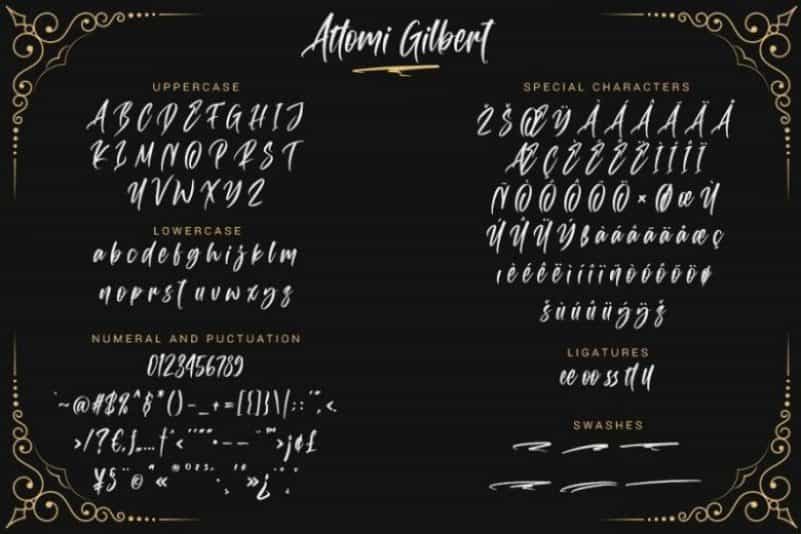 Attomi Gilbert
UPPERCASE
A B C D E F G H I J
K L M N O P Q R S T
U V W X Y Z
LOWERCASE
a b c d e f g h i j k l m
n o p r s t u v w x y z
NUMERAL AND PUCTUATION
0123456789
`~@#$%^&*()-_+=[{]}\|;:'",<.
>/?€
¥§¨©«
»¿
SPECIAL CHARACTERS
Ž Š Œ Ÿ À Á Â Ã Ä Å
Æ Ç È É Ê Ë Ì Í Î Ï
Ñ Ò Ó Ô Õ Ö × Ø œ Ù
Ú Û Ü Ý ß à á â ã ä å æ ç
è é ê ë ì í î ï ñ ò ó ô õ ö ø
š ù ú û ü ý ÿ ž
LIGATURES
ee oo ss tt ll
SWASHES